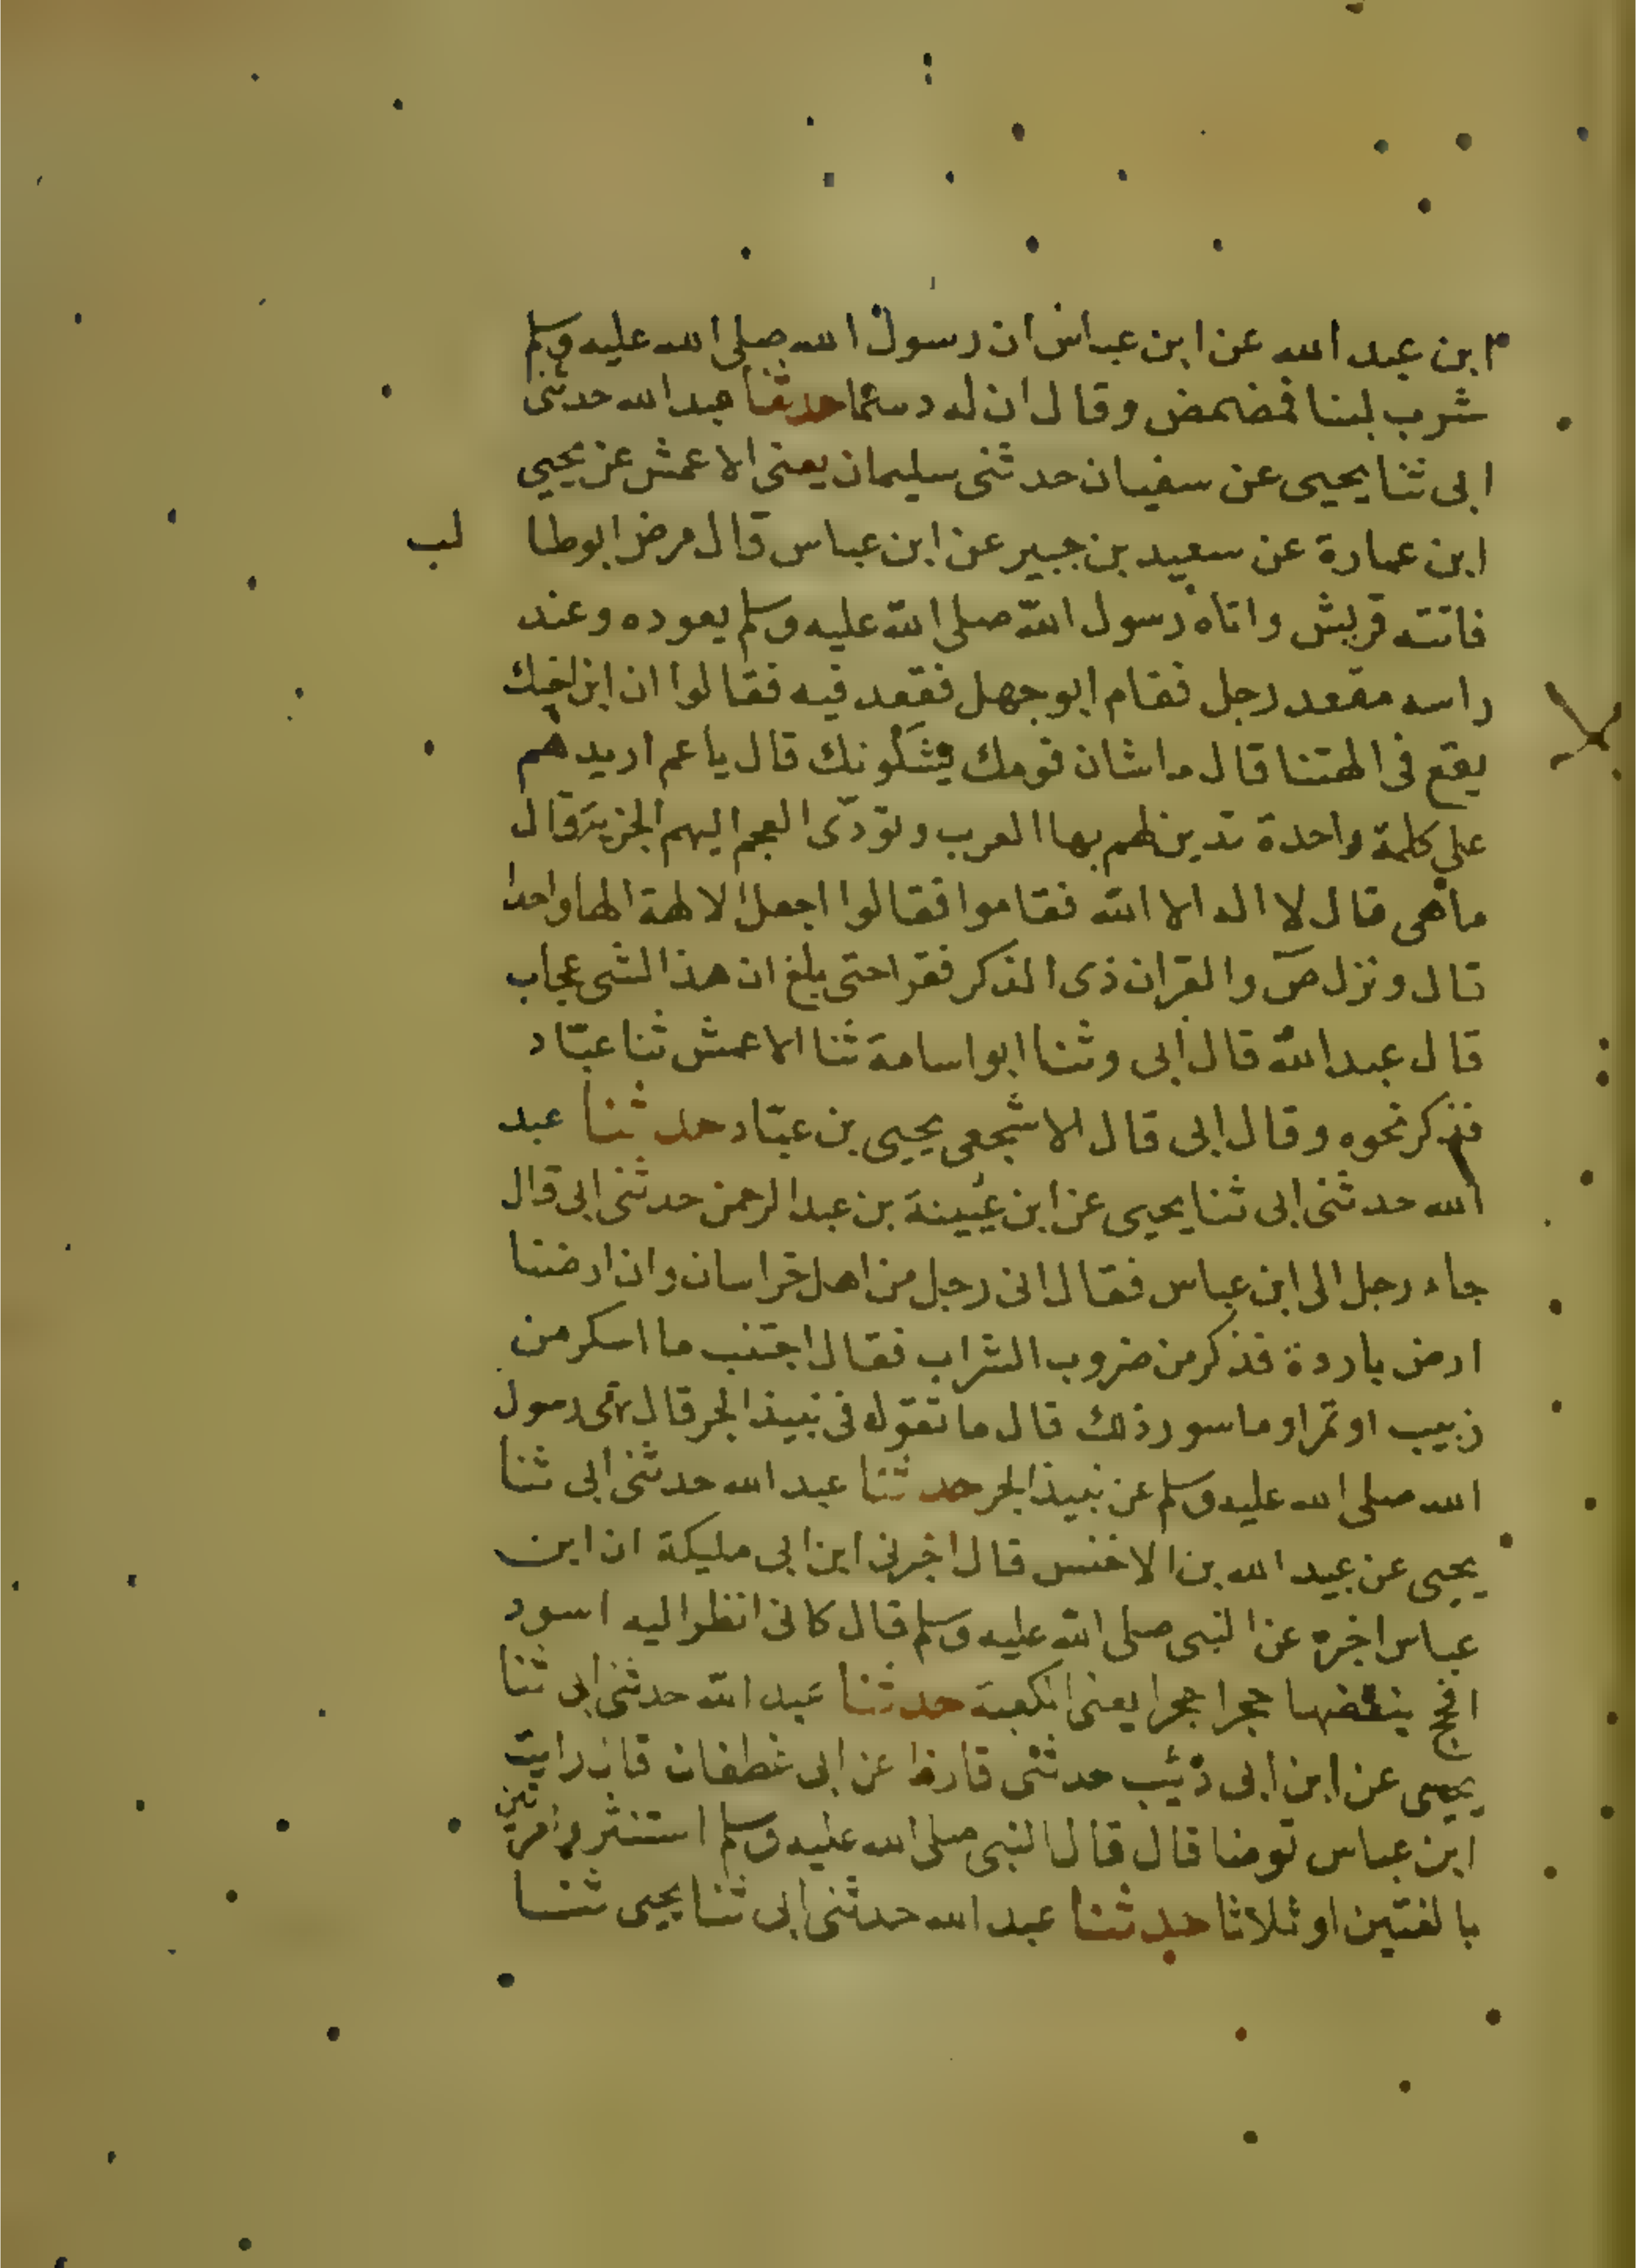 ابن عبد الله عن ابن عباس ان رسول الله صلى الله عليه وسلم
شرب لبنا فمضمض وقال ان له دسما حدثنا عبد الله حدثنى
ابى ثنا يحيى عن سفيان حدثنى سليمان يعنى الاعمش عن يحيى
ابن عمارة عن سعيد بن جبير عن ابن عباس قال مرض ابو طا لب
فاتته قريش واتاه رسول الله صلى الله عليه وسلم يعوده وعند
راسه مقعد رجل فقام ابو جهل فقعد فيه فقالوا ان ابن اخيك
يقع فى الهتنا قال ما شان قومك يشكونك قال يا عم اريدهم
على كلمة واحدة تدين لهم بها العرب وتودى العجم اليهم الجزية قال
ما هى قال لا اله الا الله فقاموا فقالوا اجعل الالهة الها واحدا
قال ونزل ص والقران ذى الذكر فقرا حتى بلغ ان هذا لشى عجاب
قال عبد الله قال ابى وثنا ابو اسامة ثنا الاعمش ثنا عباد
فذكر نحوه وقال ابى قال الاشجعى يحيى بن عباد حدثنا عبد
الله حدثنى ابى ثنا يحيى عن ابن عيينة بن عبد الرحمن حدثنى ابى قال
جاء رجل الى ابن عباس فقال انى رجل من اهل خراسان وان ارضنا
ارض باردة فذكر من ضروب الشراب فقال اجتنب ما اسكر من
زبيب او تمر او ما سور ذلك قال ما تقوله فى نبيذ الجر قال نهى رسول
الله صلى الله عليه وسلم عن نبيذ الجر حدثنا عبد الله حدثنى ابى ثنا
يحيى عن عبيد الله بن الاخنس قال اخبرنى ابن ابى مليكة ان ابن
عباس اخبره عن النبى صلى الله عليه وسلم قال كانى انظر اليه اسود
افحج ينقضها حجرا حجرا يعنى الكعبة حدثنا عبد الله حدثنى ابى ثنا
يحيى عن ابن ابى ذئب حدثنى قارظ عن ابى غطفان قال رايت
ابن عباس توضا قال قال النبى صلى الله عليه وسلم استنثروا مرتين
بالغتين او ثلاثا حدثنا عبد الله حدثنى ابى ثنا يحيى ثنا